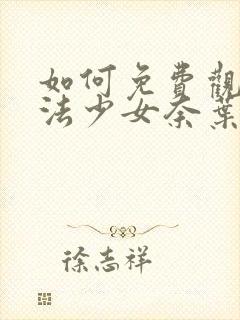 如何免費觀
法少女奈葉
徐志祥